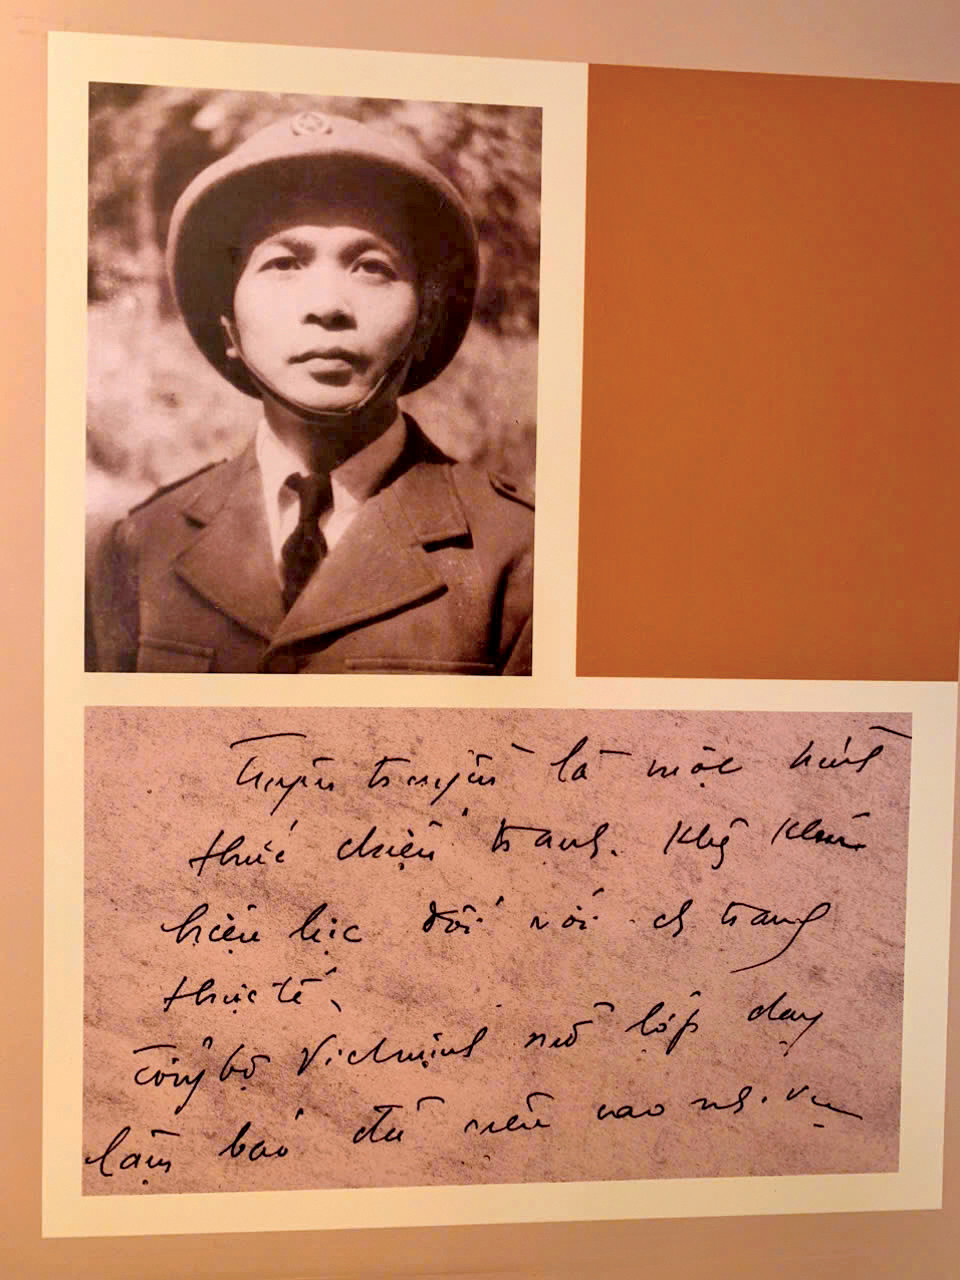 Tuyên truyền là một hình
thức chiến tranh. Khg khí
hiệu lực đối với ch trang
thực tế,
Tổng bộ Việt minh mở lớp dạy
làm báo đã nêu cao nh. vụ